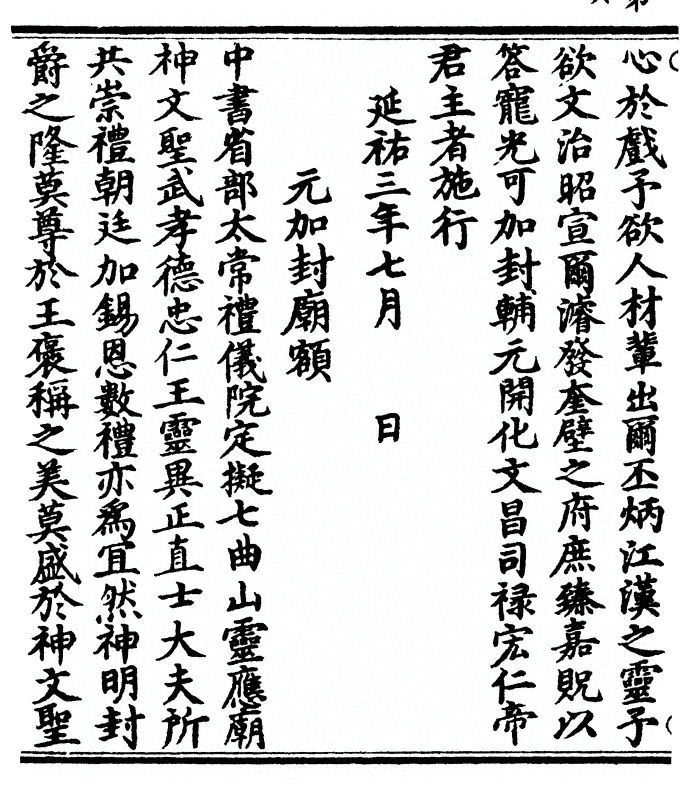 心於戲予欲人材輩出爾丕炳江漢之靈予
欲文治昭宣爾濬發奎壁之府庶臻嘉貺以
答寵光可加封輔元開化文昌司禄宏仁帝
君主者施行
延祐三年七月　日
元加封廟額
中書省部太常禮儀院定擬七曲山靈應廟
神文聖武孝德忠仁王靈異正直士大夫所
共崇禮朝廷加錫恩數禮亦爲宜然神明封
爵之隆莫尊於王褒稱之美莫盛於神文聖